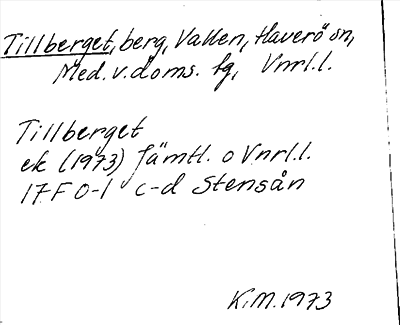 Tillberget, berg, Vallen, Haverö sn,
Med. v. doms. fg, Vnrl.l.
Tillberget
ek (1973) Jämtl. o Vnrl.l.
17F 0-1 c-d Stensån
K.M. 1973